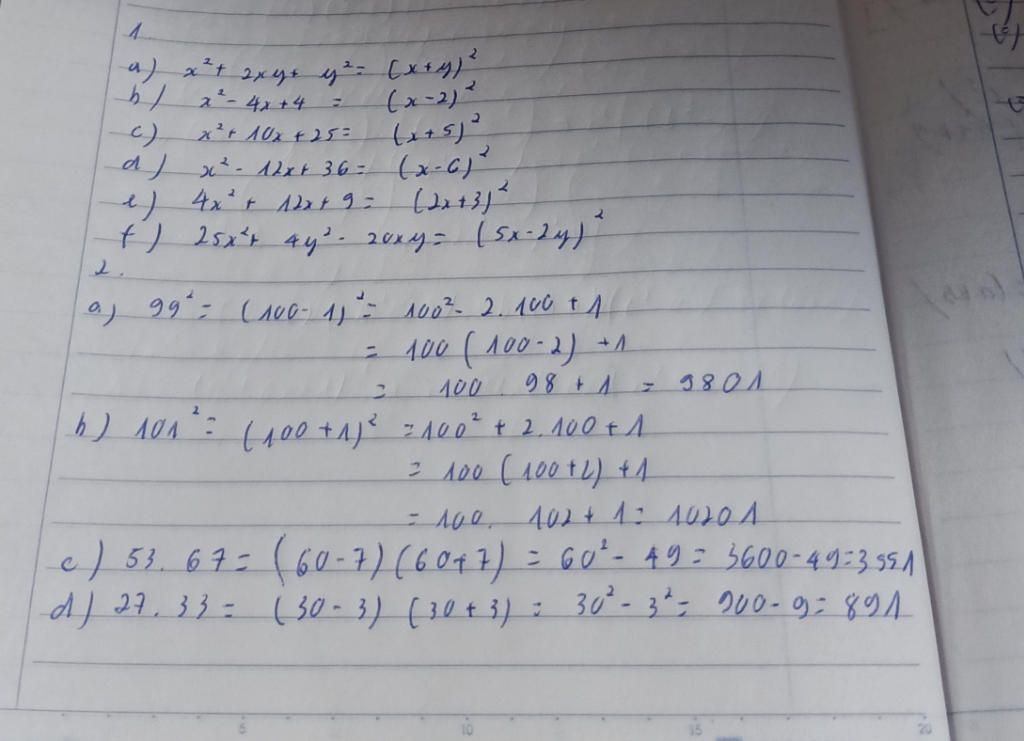 1.
a) x² + 2xy + y² = (x+y)²
b) x² - 4x + 4 = (x-2)²
c) x² + 10x + 25 = (x+5)²
d) x² - 12x + 36 = (x-6)²
e) 4x² + 12x + 9 = (2x+3)²
f) 25x² + 4y² - 20xy = (5x-2y)²
2.
a) 99² = (100-1)² = 100² - 2.100 + 1
= 100 (100-2) + 1
= 100 . 98 + 1 = 9801
b) 101² = (100+1)² = 100² + 2.100 + 1
= 100 (100+2) + 1
= 100. 102 + 1 = 10201
c) 53. 67 = (60-7)(60+7) = 60² - 49 = 3600-49=3551
d) 27. 33 = (30-3) (30+3) = 30² - 3² = 900-9= 891
5 10 15 20